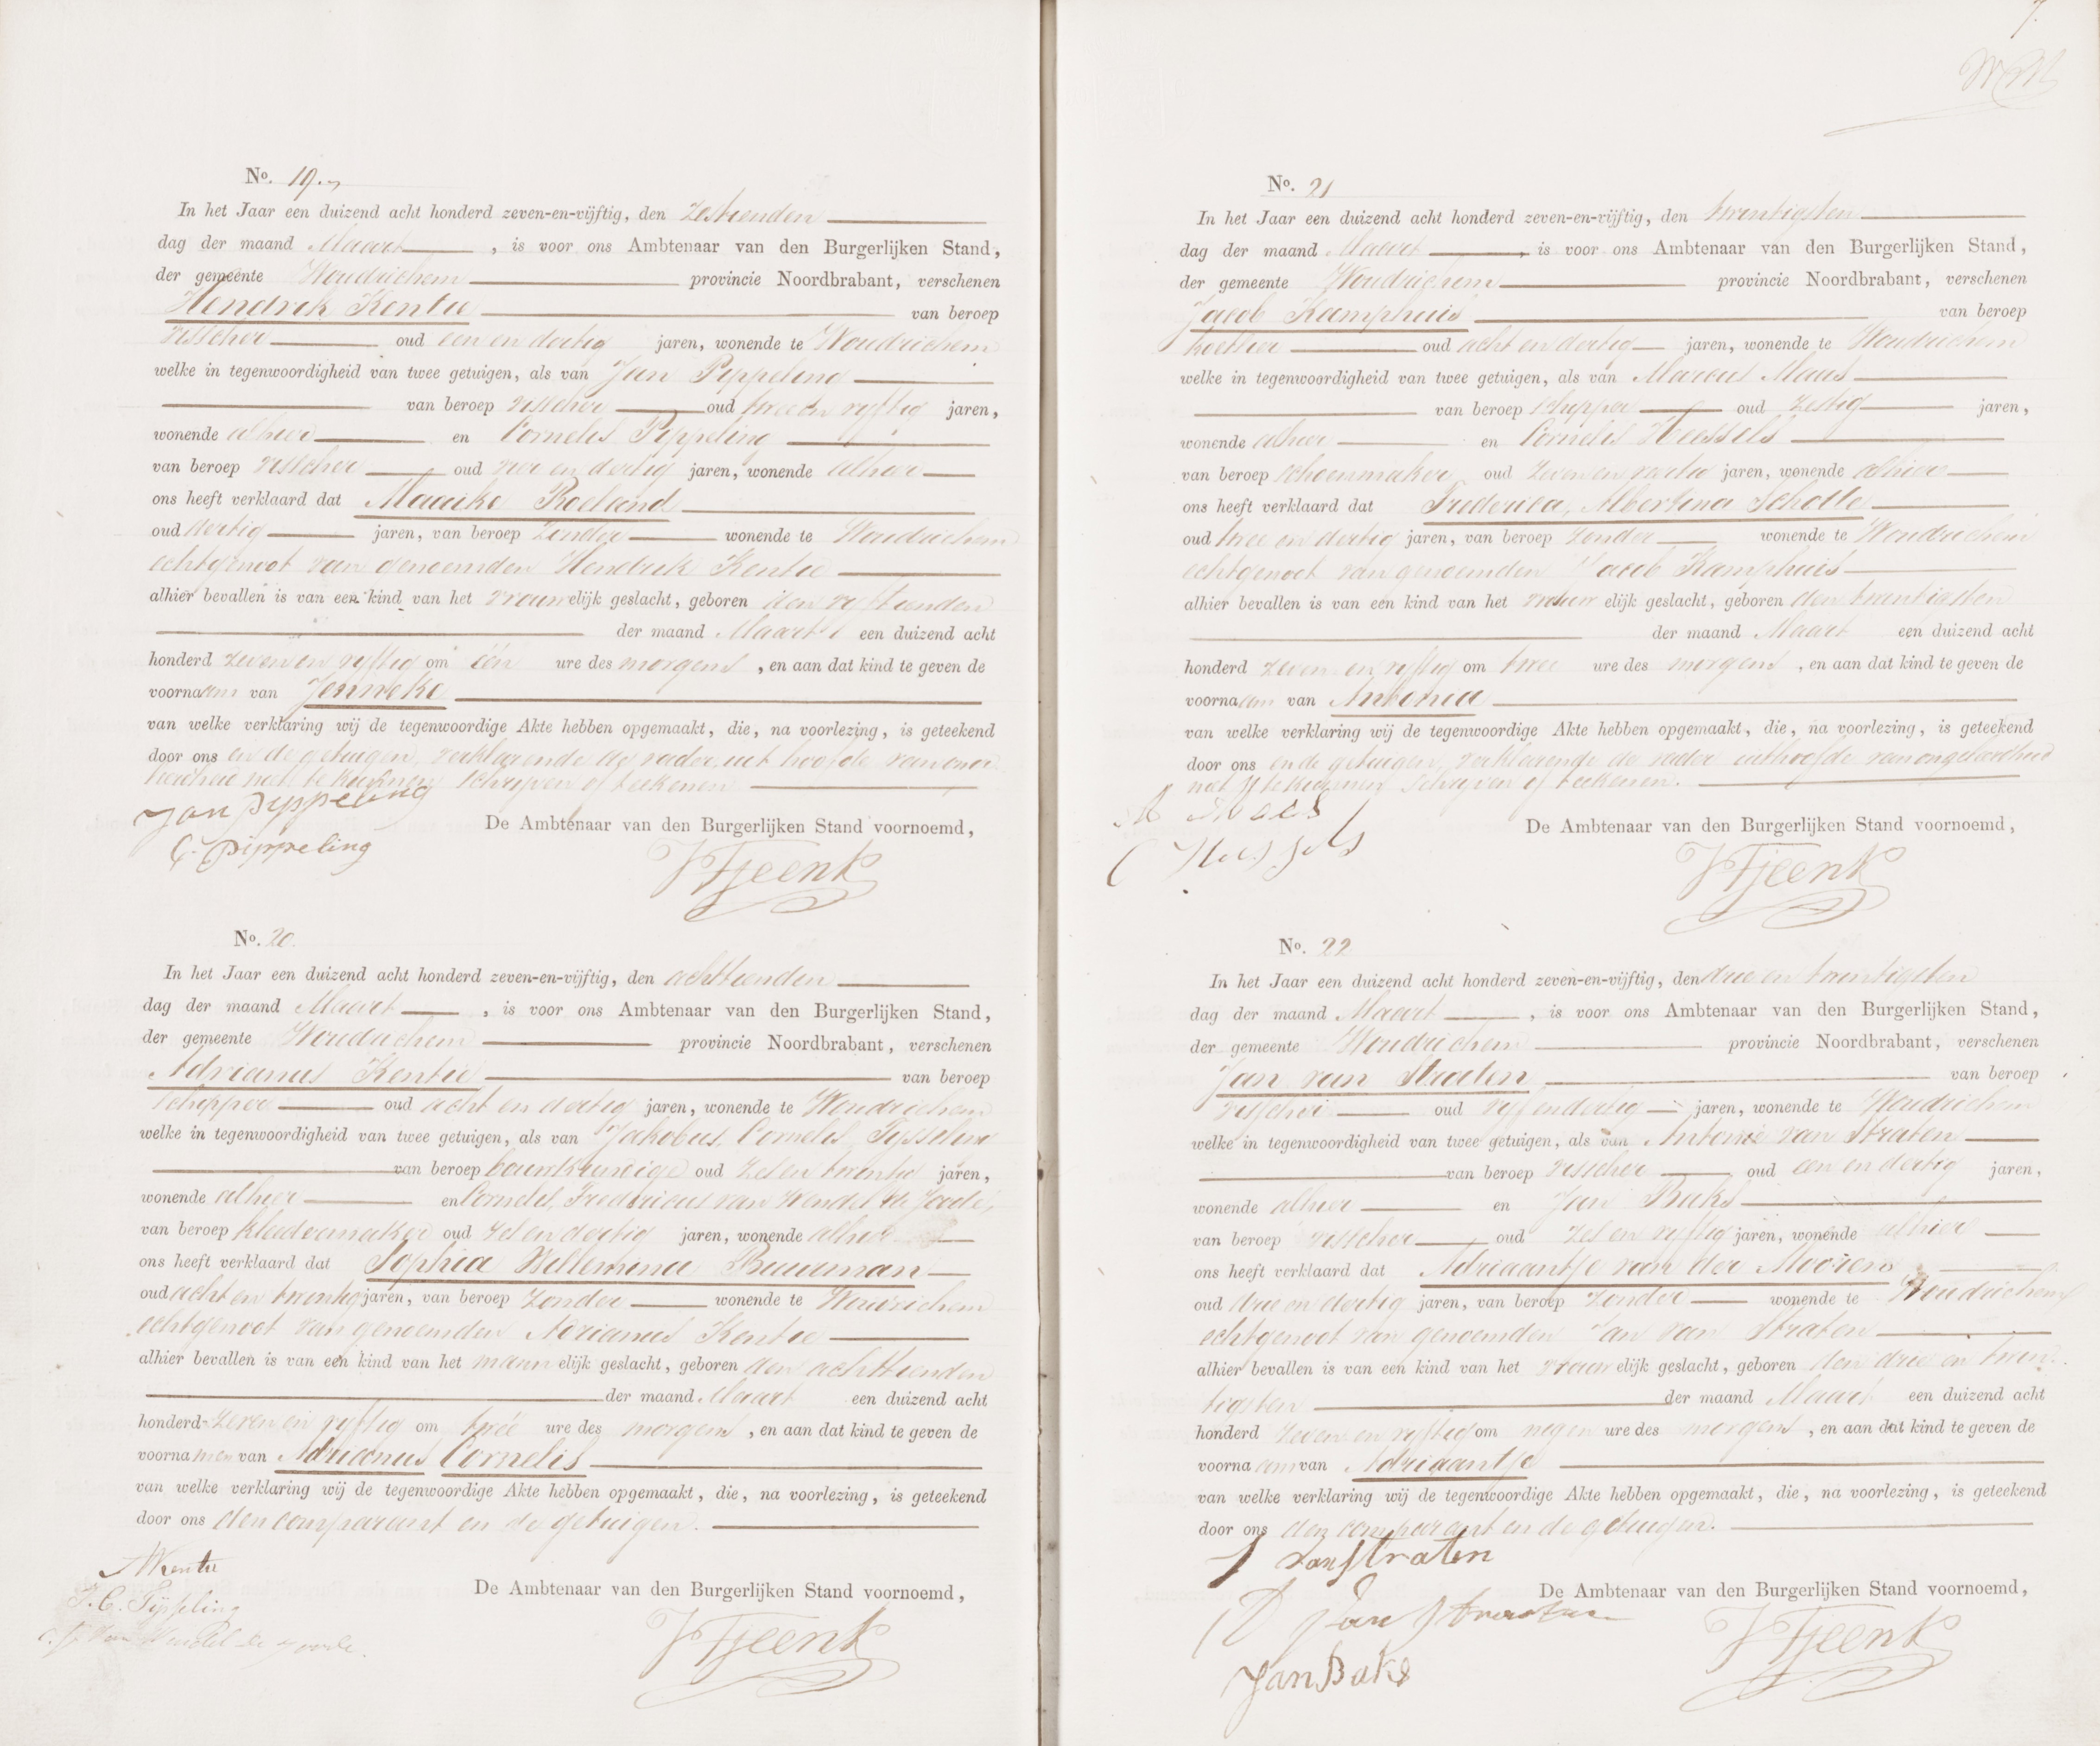 No. 19.
In het Jaar een duizend acht honderd zeven-en-vijftig, den zestienden
dag der maand Maart, is voor ons Ambtenaar van den Burgerlijken Stand,
der gemeente Woudrichem provincie Noordbrabant, verschenen
Hendrik Kentie van beroep
visscher oud een en dertig jaren, wonende te Woudrichem
welke in tegenwoordigheid van twee getuigen, als van Jan Pippeling
van beroep visscher oud twee en vyftig jaren,
wonende alhier en Cornelis Pippeling
van beroep visscher oud vier en dertig jaren, wonende alhier
ons heeft verklaard dat Maaike Roeland
oud dertig jaren, van beroep zonder wonende te Woudrichem
echtgenoot van genoemden Hendrik Kentie
alhier bevallen is van een kind van het vrouwelijk geslacht, geboren den vyftienden
der maand Maart een duizend acht
honderd zeven en vyftig om één ure des morgens, en aan dat kind te geven de
voornaam van Jenneke
van welke verklaring wij de tegenwoordige Akte hebben opgemaakt, die, na voorlezing, is geteekend
door ons en de getuigen, verklarende de vader uit hoofde van onge-
leerdheid niet te kunnen schryven of teekenen
Jan Pippeling
C. Pippeling
De Ambtenaar van den Burgerlijken Stand voornoemd,
Tjeenk
No. 20.
In het Jaar een duizend acht honderd zeven-en-vijftig, den achttienden
dag der maand Maart, is voor ons Ambtenaar van den Burgerlijken Stand,
der gemeente Woudrichem provincie Noordbrabant, verschenen
Adrianus Kentie van beroep
schipper oud acht en dertig jaren, wonende te Woudrichem
welke in tegenwoordigheid van twee getuigen, als van Jakobus Cornelis Tysseling
van beroep bouwkundige oud zes en twintig jaren,
wonende alhier en Cornelis Fredericus van Wendel de Joode,
van beroep kleedermaker oud zes en dertig jaren, wonende alhier
ons heeft verklaard dat Sophia Willemina Buurman
oud acht en twintig jaren, van beroep zonder wonende te Woudrichem
echtgenoot van genoemden Adrianus Kentie
alhier bevallen is van een kind van het mannelijk geslacht, geboren den achttienden
der maand Maart een duizend acht
honderd zeven en vyftig om twee ure des morgens, en aan dat kind te geven de
voornamen van Adrianus Cornelis
van welke verklaring wij de tegenwoordige Akte hebben opgemaakt, die, na voorlezing, is geteekend
door ons den comparant en de getuigen.
A Kentie
J. C. Tysseling
C. F. van Wendel de Joode.
De Ambtenaar van den Burgerlijken Stand voornoemd,
Tjeenk
7.
No. 21
In het Jaar een duizend acht honderd zeven-en-vijftig, den twintigsten
dag der maand Maart, is voor ons Ambtenaar van den Burgerlijken Stand,
der gemeente Woudrichem provincie Noordbrabant, verschenen
Jacob Kamphuis van beroep
koetsier oud acht en dertig jaren, wonende te Woudrichem
welke in tegenwoordigheid van twee getuigen, als van Marcus Maas
van beroep schipper oud zestig jaren,
wonende alhier en Cornelis Hessels
van beroep schoenmaker oud zeven en veertig jaren, wonende alhier
ons heeft verklaard dat Frederica, Albertina Scholte
oud twee en dertig jaren, van beroep zonder wonende te Woudrichem
echtgenoot van genoemden Jacob Kamphuis
alhier bevallen is van een kind van het vrouwelijk geslacht, geboren den twintigsten
der maand Maart een duizend acht
honderd zeven en vyftig om twee ure des morgens, en aan dat kind te geven de
voornaam van Antonia
van welke verklaring wij de tegenwoordige Akte hebben opgemaakt, die, na voorlezing, is geteekend
door ons en de getuigen, verklarende de vader uithoofde van ongeleerdheid
niet te kunnen schryven of teekenen.
M Maas
C Hessels
De Ambtenaar van den Burgerlijken Stand voornoemd,
Tjeenk
No. 22
In het Jaar een duizend acht honderd zeven-en-vijftig, den drie en twintigsten
dag der maand Maart, is voor ons Ambtenaar van den Burgerlijken Stand,
der gemeente Woudrichem provincie Noordbrabant, verschenen
Jan van Straten van beroep
visscher oud vyf en dertig jaren, wonende te Woudrichem
welke in tegenwoordigheid van twee getuigen, als van Antonie van Straten
van beroep visscher oud een en dertig jaren,
wonende alhier en Jan Baks
van beroep visscher oud zes en vyftig jaren, wonende alhier
ons heeft verklaard dat Adriaantje van der Mooren
oud drie en dertig jaren, van beroep zonder wonende te Woudrichem
echtgenoot van genoemden Jan van Straten
alhier bevallen is van een kind van het vrouwelijk geslacht, geboren den drie en twin-
tigsten der maand Maart een duizend acht
honderd zeven en vyftig om negen ure des morgens, en aan dat kind te geven de
voornaam van Adriaantje
van welke verklaring wij de tegenwoordige Akte hebben opgemaakt, die, na voorlezing, is geteekend
door ons den comparant en de getuigen.
J van Straten
van Straten
Jan Baks
De Ambtenaar van den Burgerlijken Stand voornoemd,
Tjeenk